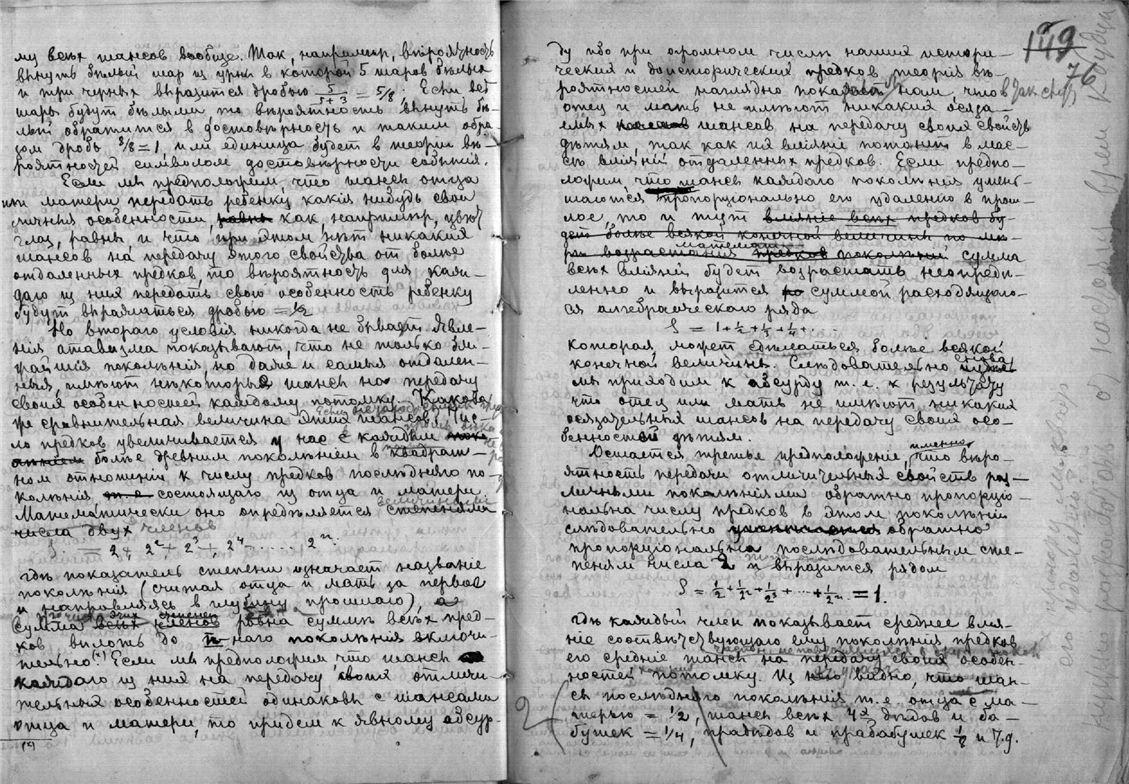 му всѣхъ шансов вообще. Так, например, вѣроятность
вынуть бѣлый шар из урны в которой 5 шаров бѣлых
и три черных выразится дробью 5/5+3 = 5/8. Если все
шары будут бѣлыми то вѣроятность вынуть бѣ-
лый обратится в достовѣрность и таким обра-
зом дробь 8/8=1, или единица будет в теории вѣ-
роятностей символом достовѣрности событий.
Если мы предположим, что шансы отца
или матери передать ребенку какия нибудь свои
личныя особенности, равны как, например, цвѣт
глаз, равны и что при этом нѣт никаких
шансов на передачу этого свойства от более
отдаленных предков, то вѣроятность для каж-
даго из них передать свою особенность ребенку
будут выражаться дробью = 1/2
Но втораго условия никогда не бывает. Явле-
ния атавизма показывают, что не только бли-
жайшия поколѣния, но даже и самыя отдален-
ныя, имѣют нѣкоторые шансы на передачу
своих особенностей каждому потомку. Какова
же сравнительная величина этих шансов? Чис-
ло предков увеличивается у нас с каждым
более древним поколѣнием в квадрат-
ном отношении к числу предков послѣдняго по-
колѣния состоящаго из отца и матери.
Математически оно опредѣляется степенями
числа двух
S = 2 + 2² + 2³ +, 2⁴ ..... 2ⁿ
гдѣ показатель степени означает название
поколѣния (считая отца и мать за первое
и направляясь в глубину прошлаго), а
сумма этих степеней равна суммѣ всѣх пред-
ков, вплоть до n-наго поколѣния включи-
тельно. Если мы предположим, что шансы
каждаго из них на передачу своих отличи-
тельных особенностей одинаковы с шансами
отца и матери, то придем к явному абсур-
149
76
ду ибо при огромном числѣ наших истори-
ческих и доисторических предков теория вѣ-
роятностей наглядно покажет нам, что
отец и мать не имѣют никаких осяза-
емых шансов на передачу своих свойств
дѣтям, так как их влияние потонет в мас-
сѣ влияний отдаленных предков. Если предпо-
ложим, что шансы каждаго поколѣния умень-
шаются пропорционально его удалению в прош-
лое, то и тут влияние всѣх предков бу-
дет болѣе всякой конечной величины по мѣ-
рѣ возрастания предков поколѣний сумма
всѣх влияний будет возрастать неопредѣ-
ленно и выразится суммой расходящаго-
ся алгебраическаго ряда
S = 1 + 1/2 + 1/3 + 1/4 + ...
которая может сдѣлаться болѣе всякой
конечной величины. Слѣдовательно снова
мы приходим к абсурду т. е. к результату
что отец или мать не имѣют никаких
осязательных шансов на передачу своих осо-
бенностей дѣтям.
Остается третье предположение, именно что вѣро-
ятность передачи отличительных свойств раз-
личными поколѣниями обратно пропорцио-
нальна числу предков в этом поколѣнии
слѣдовательно обратно
пропорциональна послѣдовательным сте-
пеням числа 2 и выразится рядом
S = 1/2 + 1/2² + 1/2³ + ... + 1/2ⁿ = 1.
гдѣ каждый член показывает среднее влия-
ние соотвѣтствующаго ему поколѣния предков
его средние шансы на передачу своих особен-
ностей потомку. Из него видно, что шан-
сы послѣдняго поколѣния т. е. отца с ма-
терью = 1/2, шансы всѣх 4х дѣдов и ба-
бушек = 1/4, прадѣдов и прабабушек 1/8 и т. д.